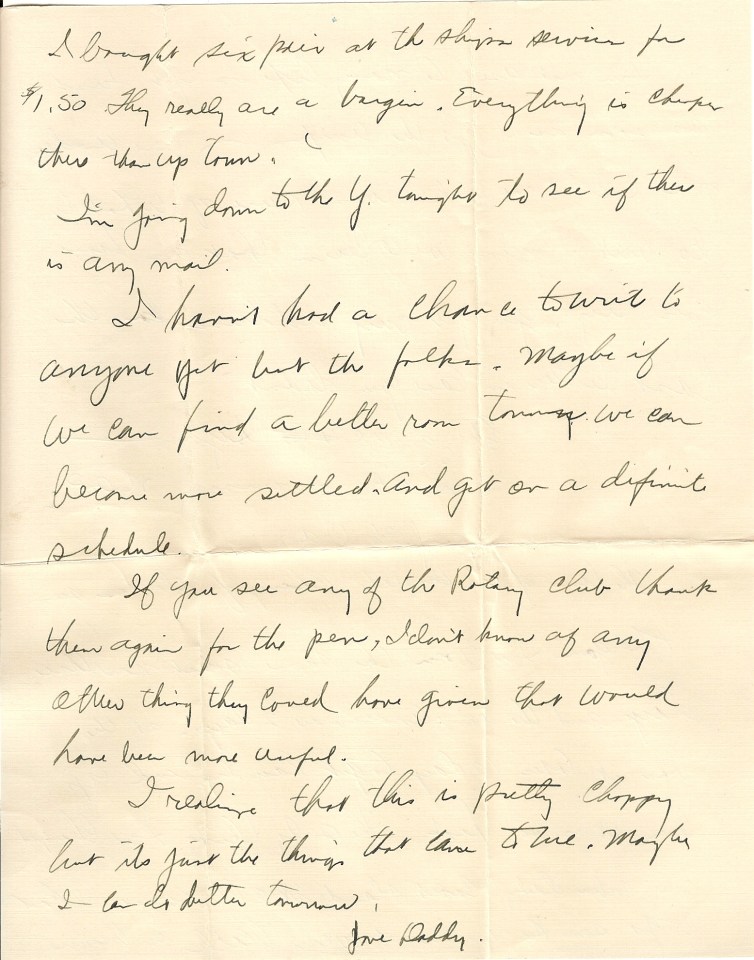 I bought six pair at the ships service for
$1.50 They really are a bargin. Everything is cheaper
there than up town.
I'm going down to the Y. tonight to see if there
is any mail.
I haven't had a chance to write to
anyone yet but the folks. Maybe if
we can find a better room we can
become more settled. And get on a definite
schedule.
If you see any of the Rotary club thank
them again for the pen, I don't know of any
other thing they could have given that would
have been more useful.
I realize that this is pretty choppy
but its just the things that come to me. Maybe
I can do better tomorrow.
Love Daddy.